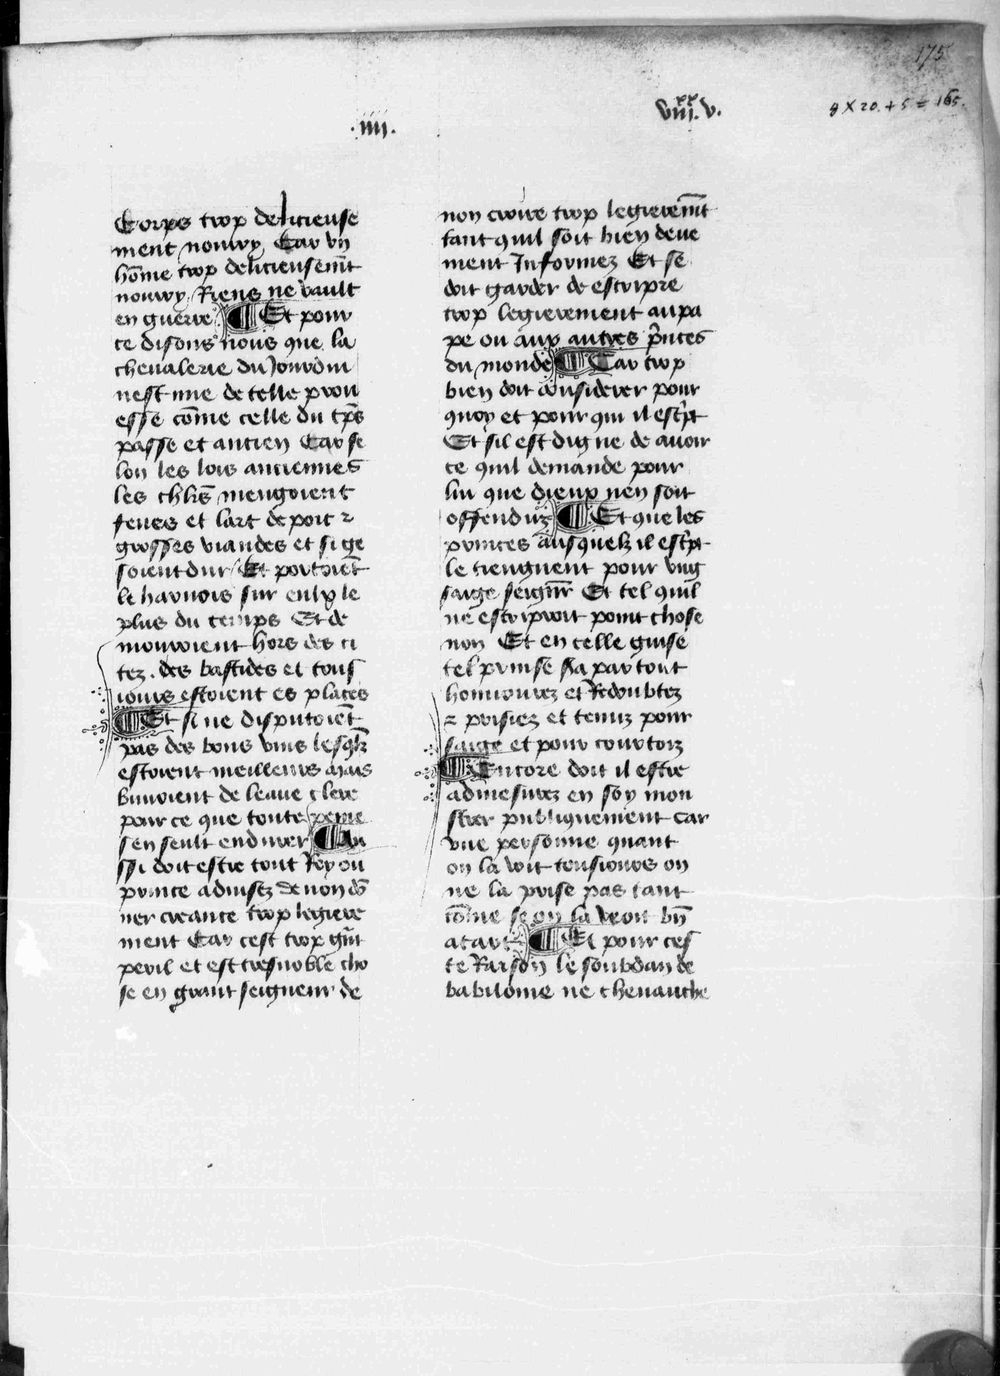 175
.iiii.
viii.xx v.
8 X 20. + 5 = 165.
Corps trop delicieuse
ment nourry Car vn
hōme trop delicieusemēt
nourry Riens ne vault
en guerre ¶ Et pour
ce disons nous que la
cheualerie du Jourdui
nest mie de telle prou
esse cōme celle du tp̄s
passe et ancien Car se
lon les lois anciennes
les chl̄rs mengoient
feues et lart de porc ⁊
grosses viandes et si ge
soient dur Et portoiēt
le harnois sur eulx le
plus du temps Et de
mouroient hors des ci
tez. des bastides et tous
iours estoient es places
¶ Et si ne disputoiēt
pas des bons vins lesq̄lz
estoient meilleurs mais
buuoient de leaue clere
pour ce que toute peine
sen seult endurer ¶ Au
ssi doit estre tout Roy ou
prince aduisez de non dō
ner creance trop legiere
ment Car cest trop grāt
peril et est tresnoble cho
se en grant seigneur de
non croire trop legieremēt
tant quil soit bien deue
ment Informez Et se
doit garder de escripre
trop legierement au pa
pe ou aux autres p̄nces
du monde ¶ Car trop
bien doit considerer pour
quoy et pour qui il esc̄pt
Et sil est digne de auoir
ce quil demande pour
lui que dieux nen soit
offenduz ¶ Et que les
princes ausquelz il esc̄pt
le tiengnent pour vng
saige seignr̄ Et tel quil
ne escriproit point chose
non Et en celle guise
tel prinse sa par tout
honnourez et Redoubtez
⁊ prisiez et tenuz pour
saige et pour courtois
¶ Encore doit il estre
admesurez en soy mon
strer publiquement Car
vne personne quant
on la voit tousiours on
ne la prise pas tant
cōme se on la veoit bn̄
a tart ¶ Et pour ces
te Raison le soubdan de
babilonie ne cheuauche